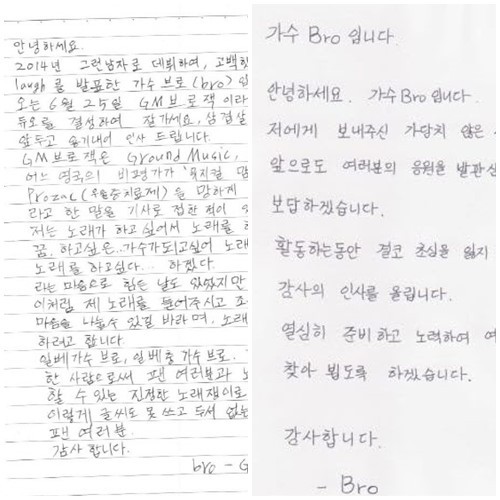 안녕하세요.
2014년 그런남자로 데뷔하여, 고백했
laugh 를 발표한 가수 브로(bro) 입
오는 6월 25일 GM브로잭 이라
듀오를 결성하여 잘가세요, 삼겹살
앞두고 용기내어 인사 드립니다.
GM브로잭은 Ground Music,
어느 영국의 비평가가 '뮤지컬
Prozac(우울증치료제)을 말하게
라고 한 말을 기사로 접한 적이
저는 노래가 하고싶어서 노래를
꿈. 하고싶은..가수가되고싶어 노래
노래를 하고싶다.. 하겠다.
라는 마음으로 힘든 날도 있었지만
이처럼 제 노래를 들어주시고
마음을 나눌수 있길 바라며, 노래
하려고 합니다.
일베가수 브로, 일베충 가수브로.
한 사람으로써 팬 여러분과
할 수 있는 진정한 노래쟁이로
이렇게 글씨도 못 쓰고 두서 없는
팬 여러분.
감사 합니다.
bro - G
가수 Bro 입니다.
안녕하세요. 가수 Bro 입니다.
저에게 보내주신 가당치 않은
앞으로도 여러분의 응원을 발판삼
보답하겠습니다.
활동하는동안 결코 초심을 잃지
감사의 인사를 올립니다.
열심히 준비하고 노력하여 여
찾아 뵙도록 하겠습니다.
감사합니다.
- Bro